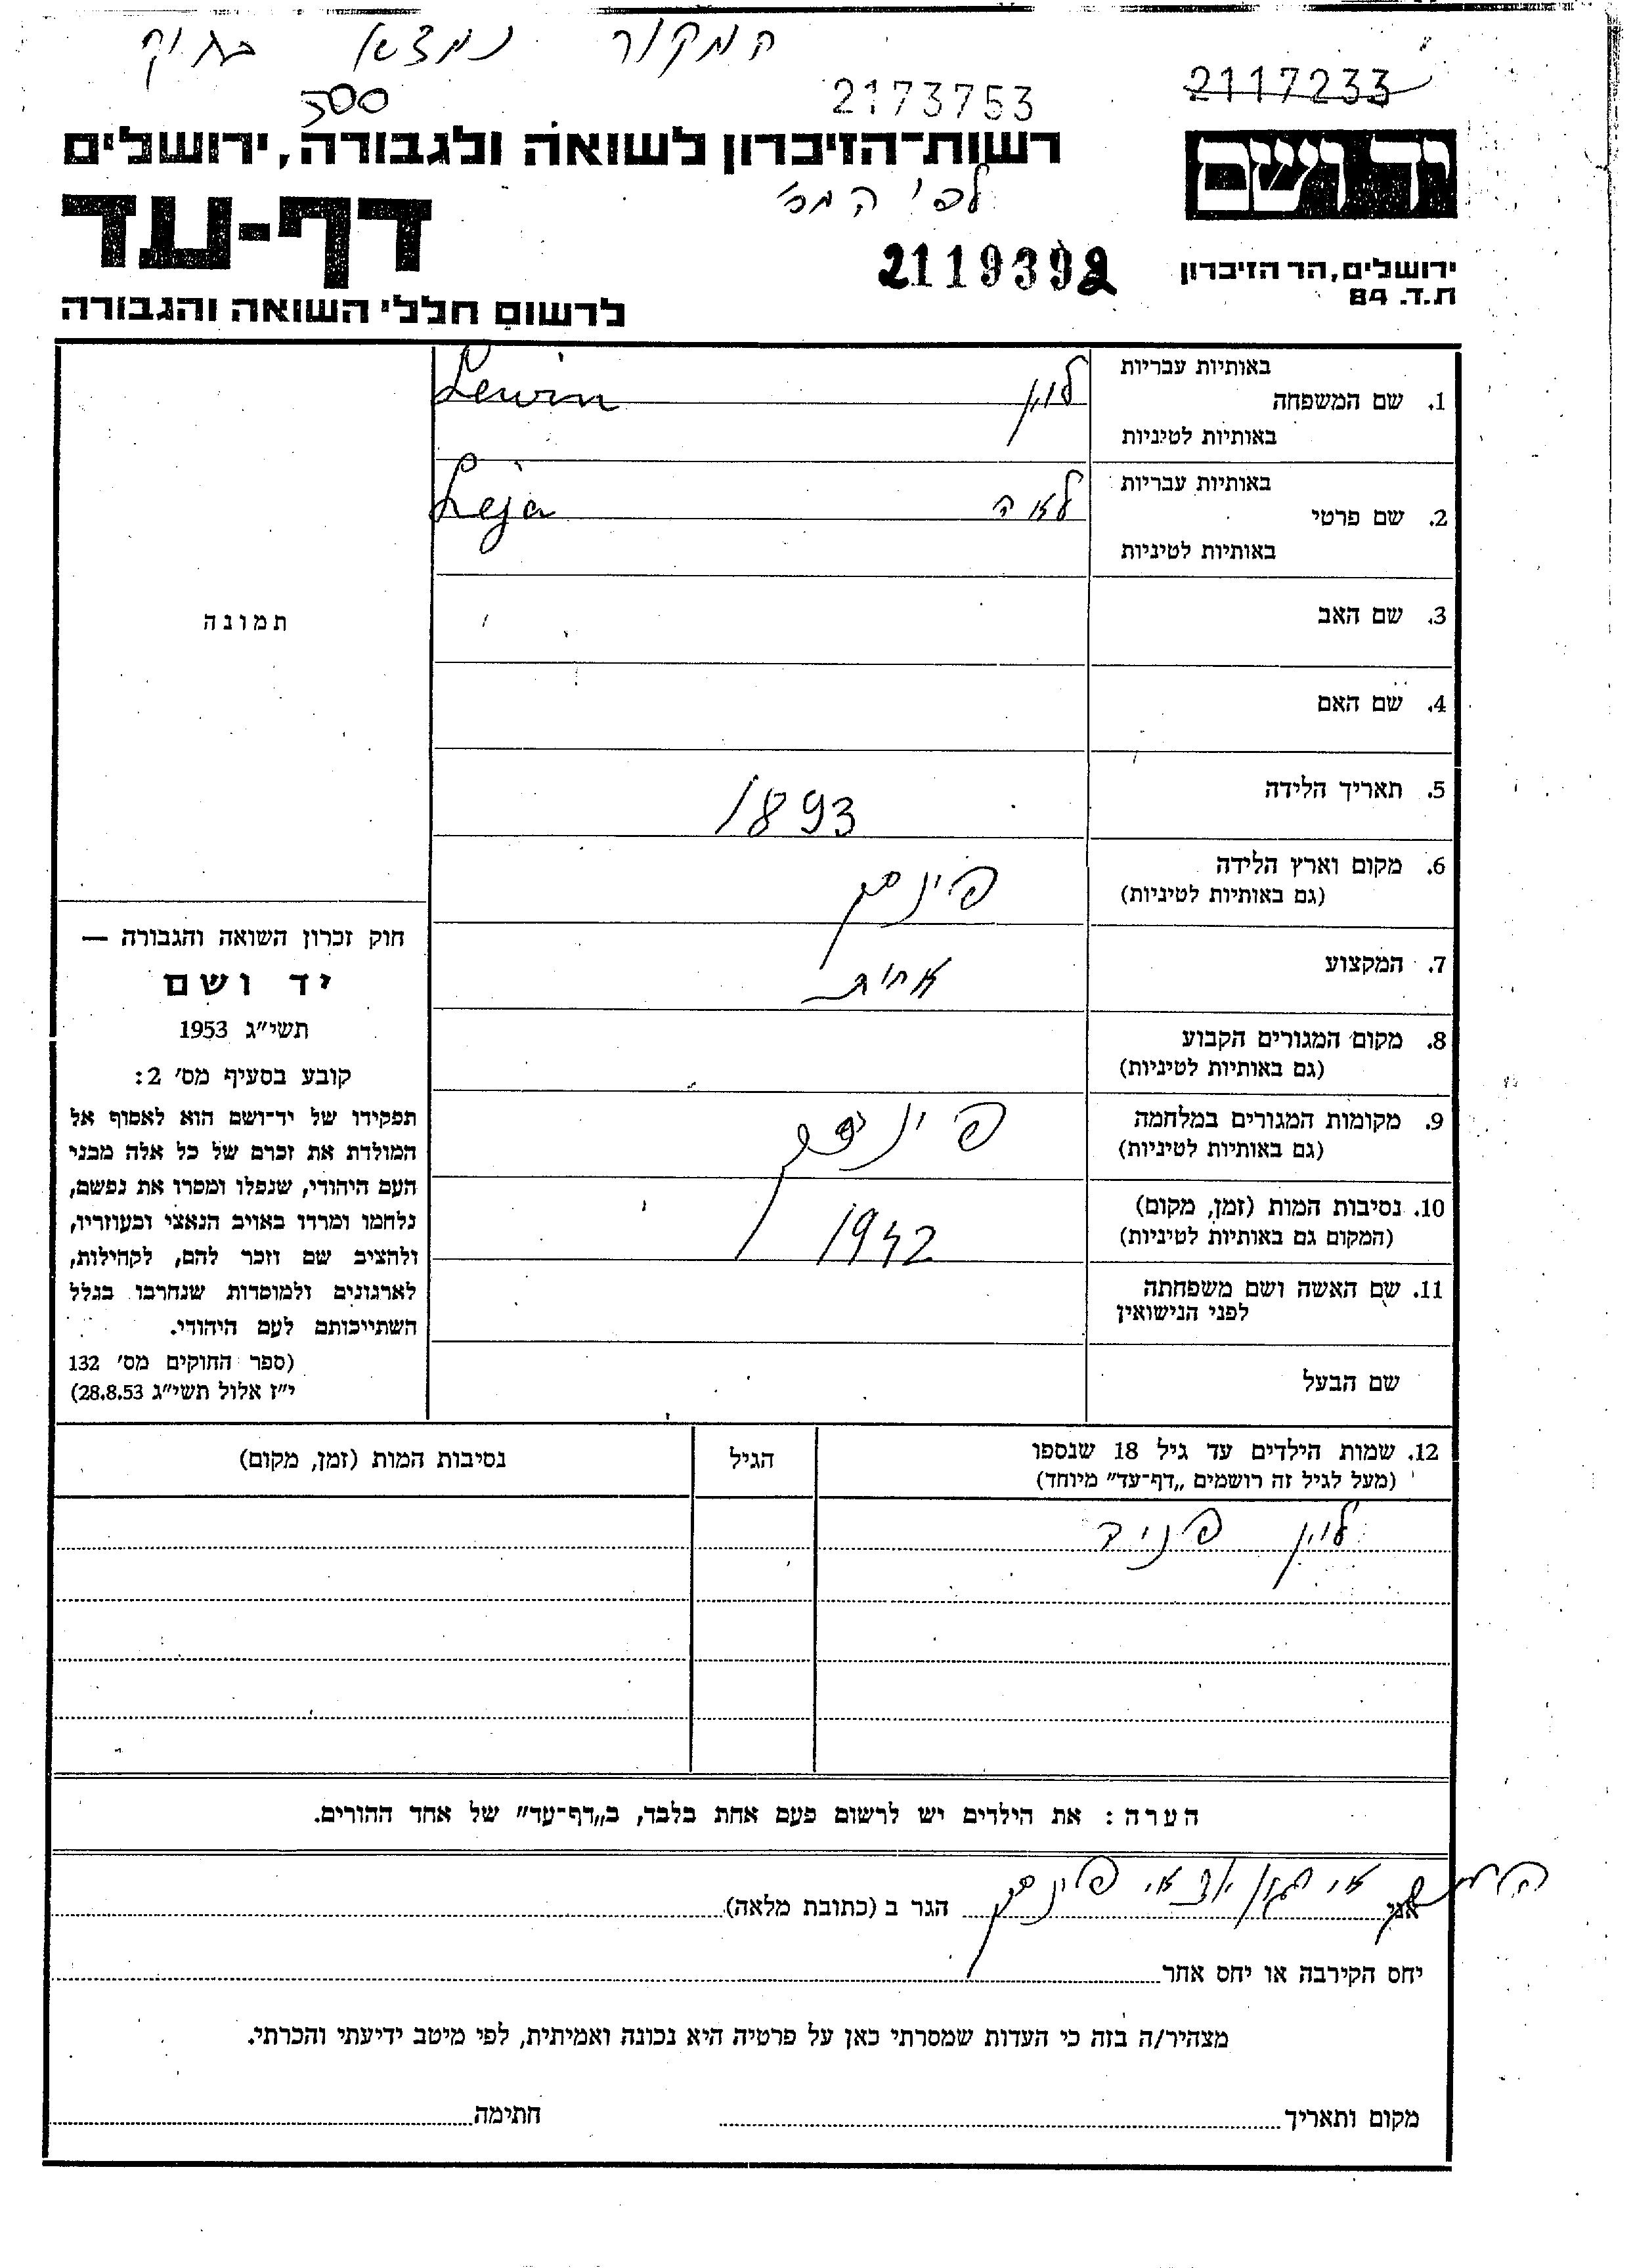 המקור נמצא בתיק
500
2173753
2117233
רשות־הזיכרון לשואה ולגבורה, ירושלים
יד ושם
דף-עד
לפי המכ׳
2119392
ירושלים, הר הזיכרון
ת.ד. 84
לרשום חללי השואה והגבורה
באותיות עבריות
1. שם המשפחה
לוין Lewin
באותיות לטיניות
באותיות עבריות
2. שם פרטי
לאה Leja
באותיות לטיניות
3. שם האב
תמונה
4. שם האם
5. תאריך הלידה
1893
6. מקום וארץ הלידה
(גם באותיות לטיניות)
פינסק
7. המקצוע
אחות
8. מקום המגורים הקבוע
(גם באותיות לטיניות)
9. מקומות המגורים במלחמה
(גם באותיות לטיניות)
פינסק
10. נסיבות המות (זמן, מקום)
(המקום גם באותיות לטיניות)
1942
11. שם האשה ושם משפחתה
לפני הנישואין
שם הבעל
חוק זכרון השואה והגבורה —
יד ושם
תשי״ג 1953
קובע בסעיף מס׳ 2:
תפקידו של יד־ושם הוא לאסוף אל
המולדת את זכרם של כל אלה מבני
העם היהודי, שנפלו ומסרו את נפשם,
נלחמו ומרדו באויב הנאצי ובעוזריו,
ולהציב שם וזכר להם, לקהילות,
לארגונים ולמוסדות שנחרבו בגלל
השתייכותם לעם היהודי.
(ספר החוקים מס׳ 132
י״ז אלול תשי״ג 28.8.53)
12. שמות הילדים עד גיל 18 שנספו
(מעל לגיל זה רושמים „דף־עד״ מיוחד)
הגיל
נסיבות המות (זמן, מקום)
לוין פניה
הערה: את הילדים יש לרשום פעם אחת בלבד, ב„דף־עד״ של אחד ההורים.
אני
ארגון יוצאי פינסק
הגר ב (כתובת מלאה)
יחס הקירבה או יחס אחר
מצהיר/ה בזה כי העדות שמסרתי כאן על פרטיה היא נכונה ואמיתית, לפי מיטב ידיעתי והכרתי.
מקום ותאריך
חתימה